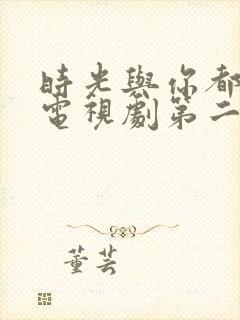 時光與你都
電視劇第二
董芸